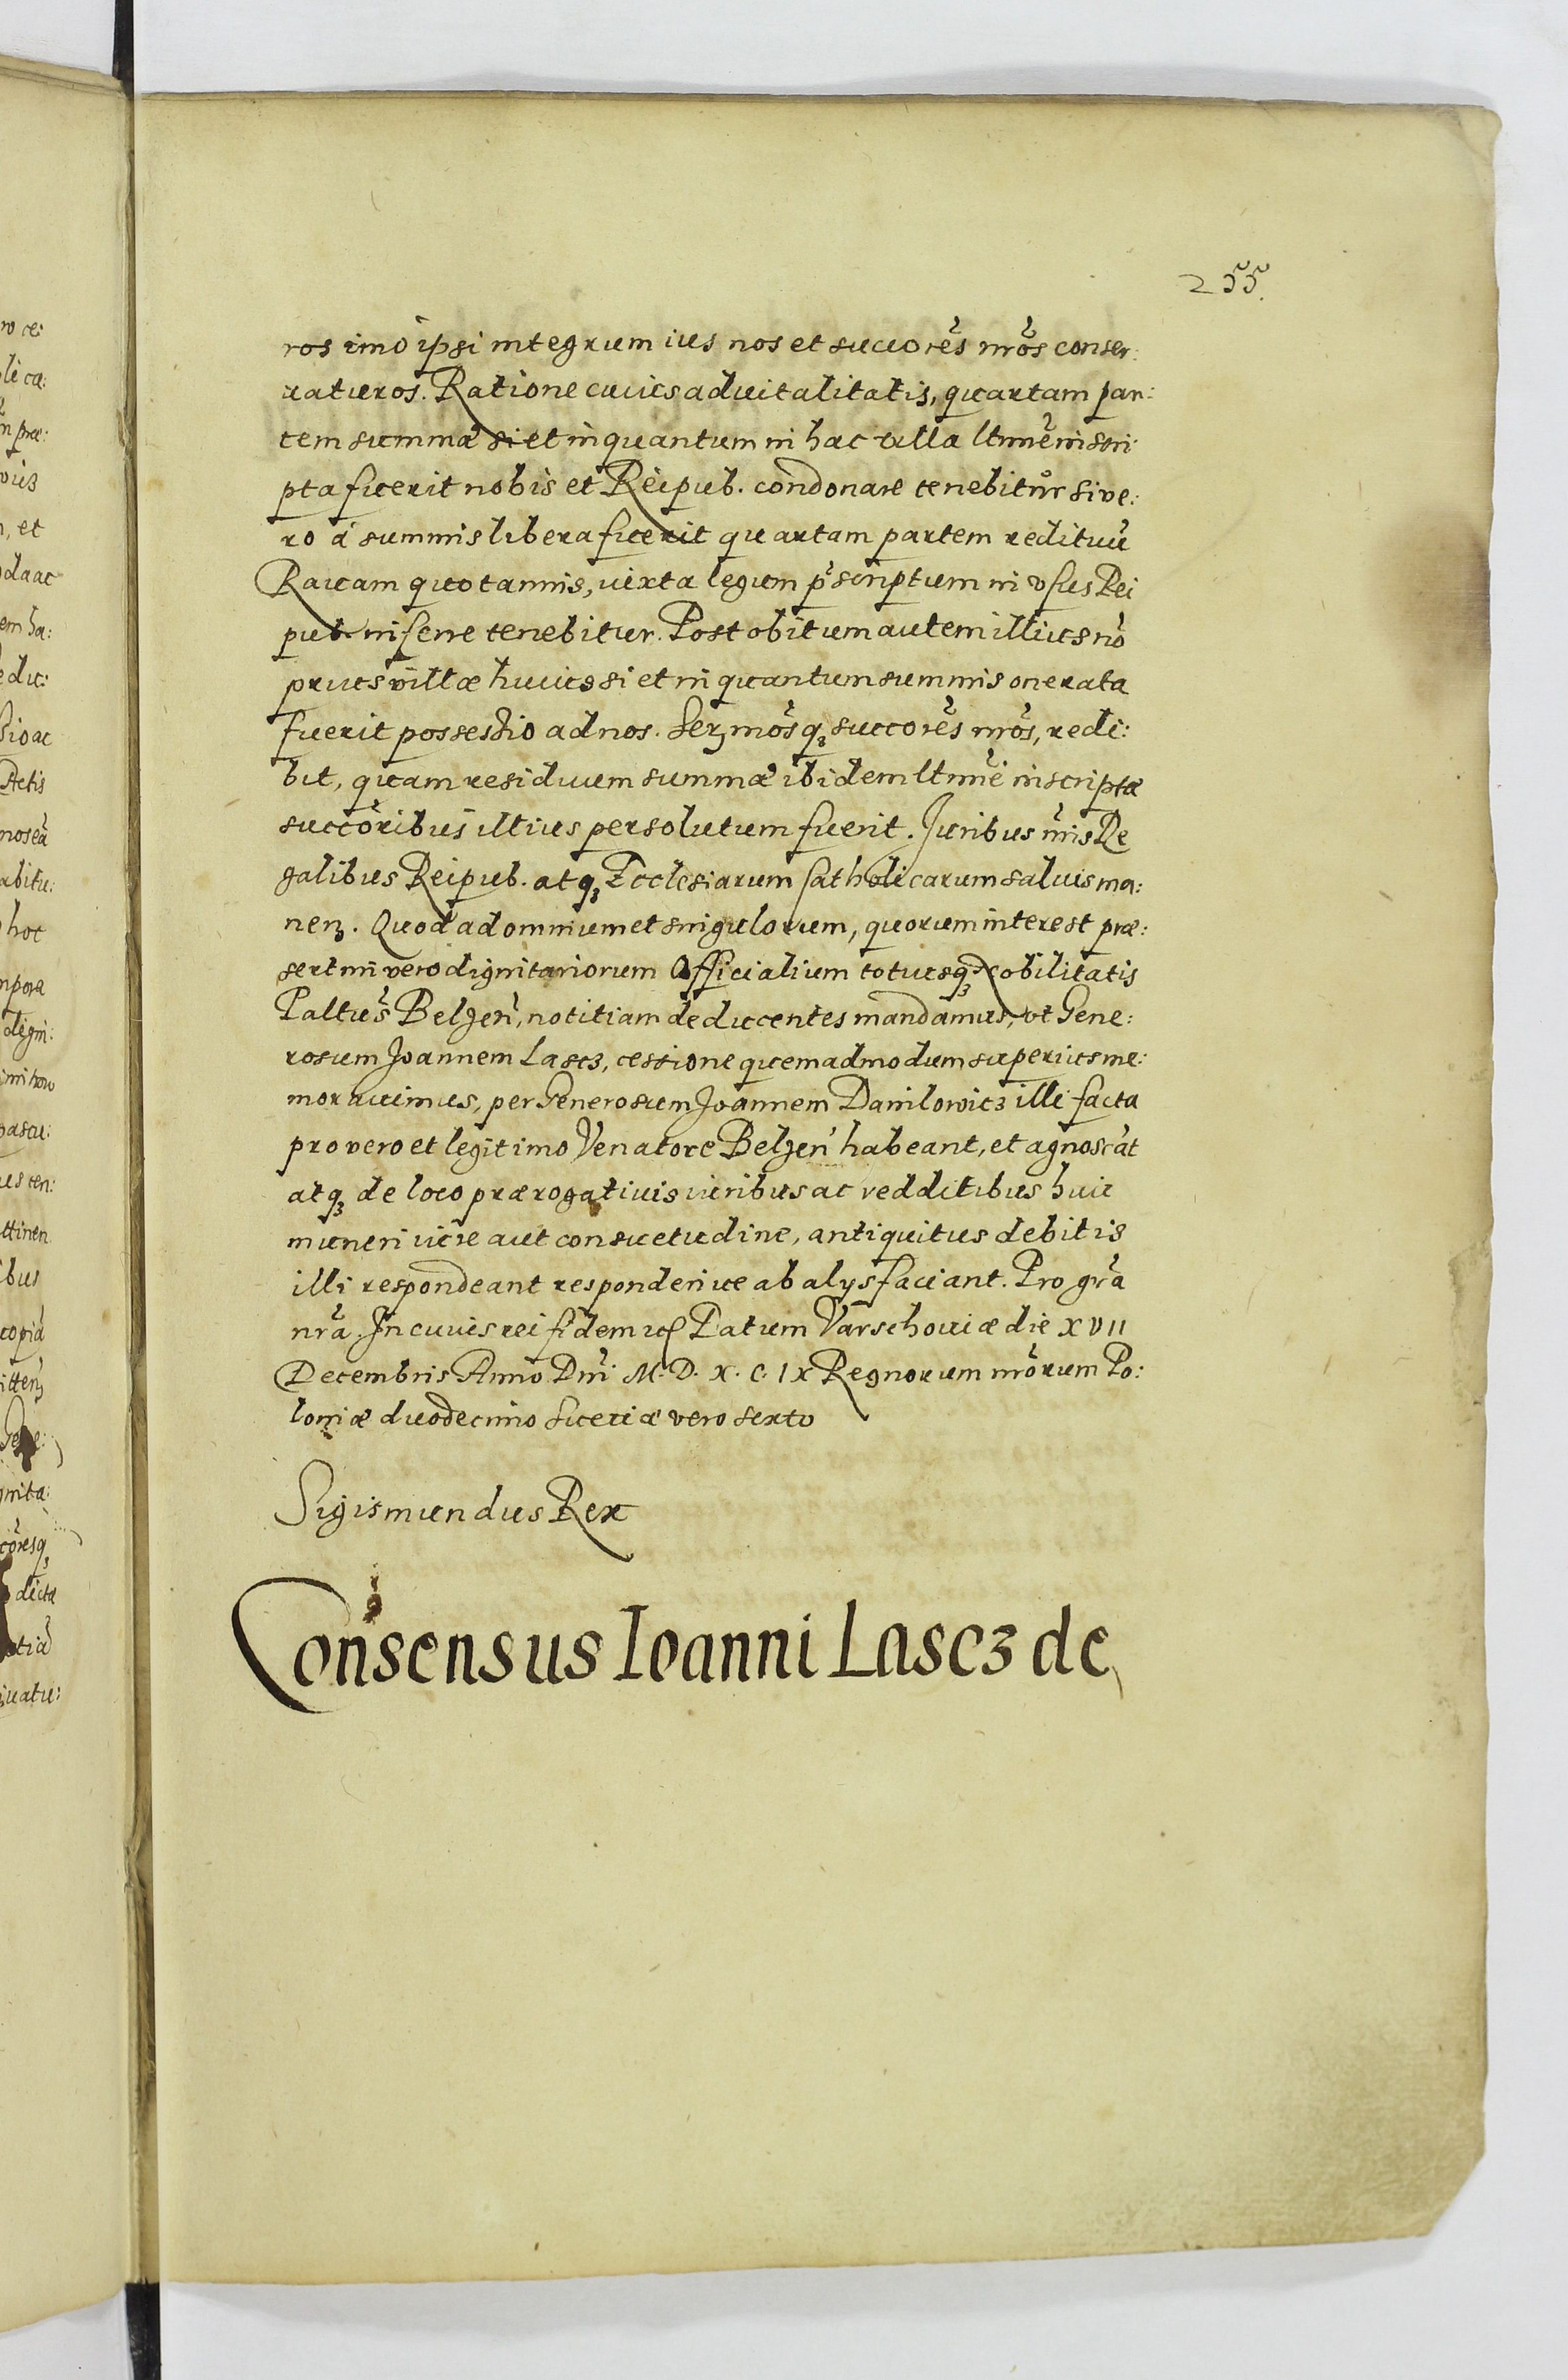 255.
ros imo ipsi integrum ius nos et succores nros conser:
uaturos. Ratione cuius aduitalitatis, quartam par:
tem summæ si et in quantum in hac villa ltime inscri:
pta fuerit nobis et Reipub. condonare tenebitur si ve:
ro à summis libera fuerit quartam partem redituũ
Rauam quotannis, iuxta legum pscriptum in vsus Rei
pub. inferre tenebitur. Post obitum autem illius nõ
prius villæ huius si et in quantum summis onerata
fuerit possessio ad nos. Serz mosqz succores nros, redi:
bit, quam residuum summæ ibidem ltime inscriptæ
succoribus illius persolutum fuerit. Juribus nris Re
galibus Reipub. atqz Ecclesiarum Catholicarum saluis ma:
nenz. Quod ad omnium et singulorum, quorum interest præ:
sertim vero dignitariorum Officialium totiusqz Nobilitatis
Paltus Belzen, notitiam deducentes mandamus, vt Gene:
rosum Joannem Lascz, cessione quemadmodum superius me:
morauimus, per Generosum Joannem Danilowicz illi facta
pro vero et legitimo Venatore Belzen habeant, et agnoscãt
atqz de loco prærogatiuis iuribus ac redditibus huic
muneri iure aut consuetudine, antiquitus debitis
illi respondeant responderiue ab alys faciant. Pro gra
nra. In cuius rei fidem etc Datum Varschouiæ die XVII
Decembris Anno Dni M. D. X. C. IX Regnorum nrorum Po:
loniæ duodecimo Sueciæ vero sexto
Sigismundus Rex
Consensus Ioanni Lascz de